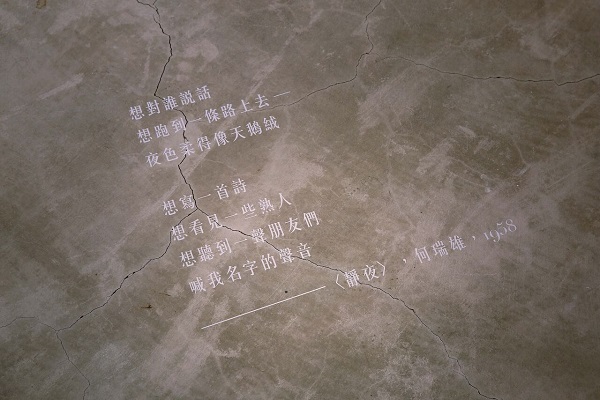 想對誰説話
想跑到一條路上去—
夜色柔得像天鵝絨
想寫一首詩
想看見一些熟人
想聽到一聲朋友們
喊我名字的聲音
〈靜夜〉，何瑞雄，1958